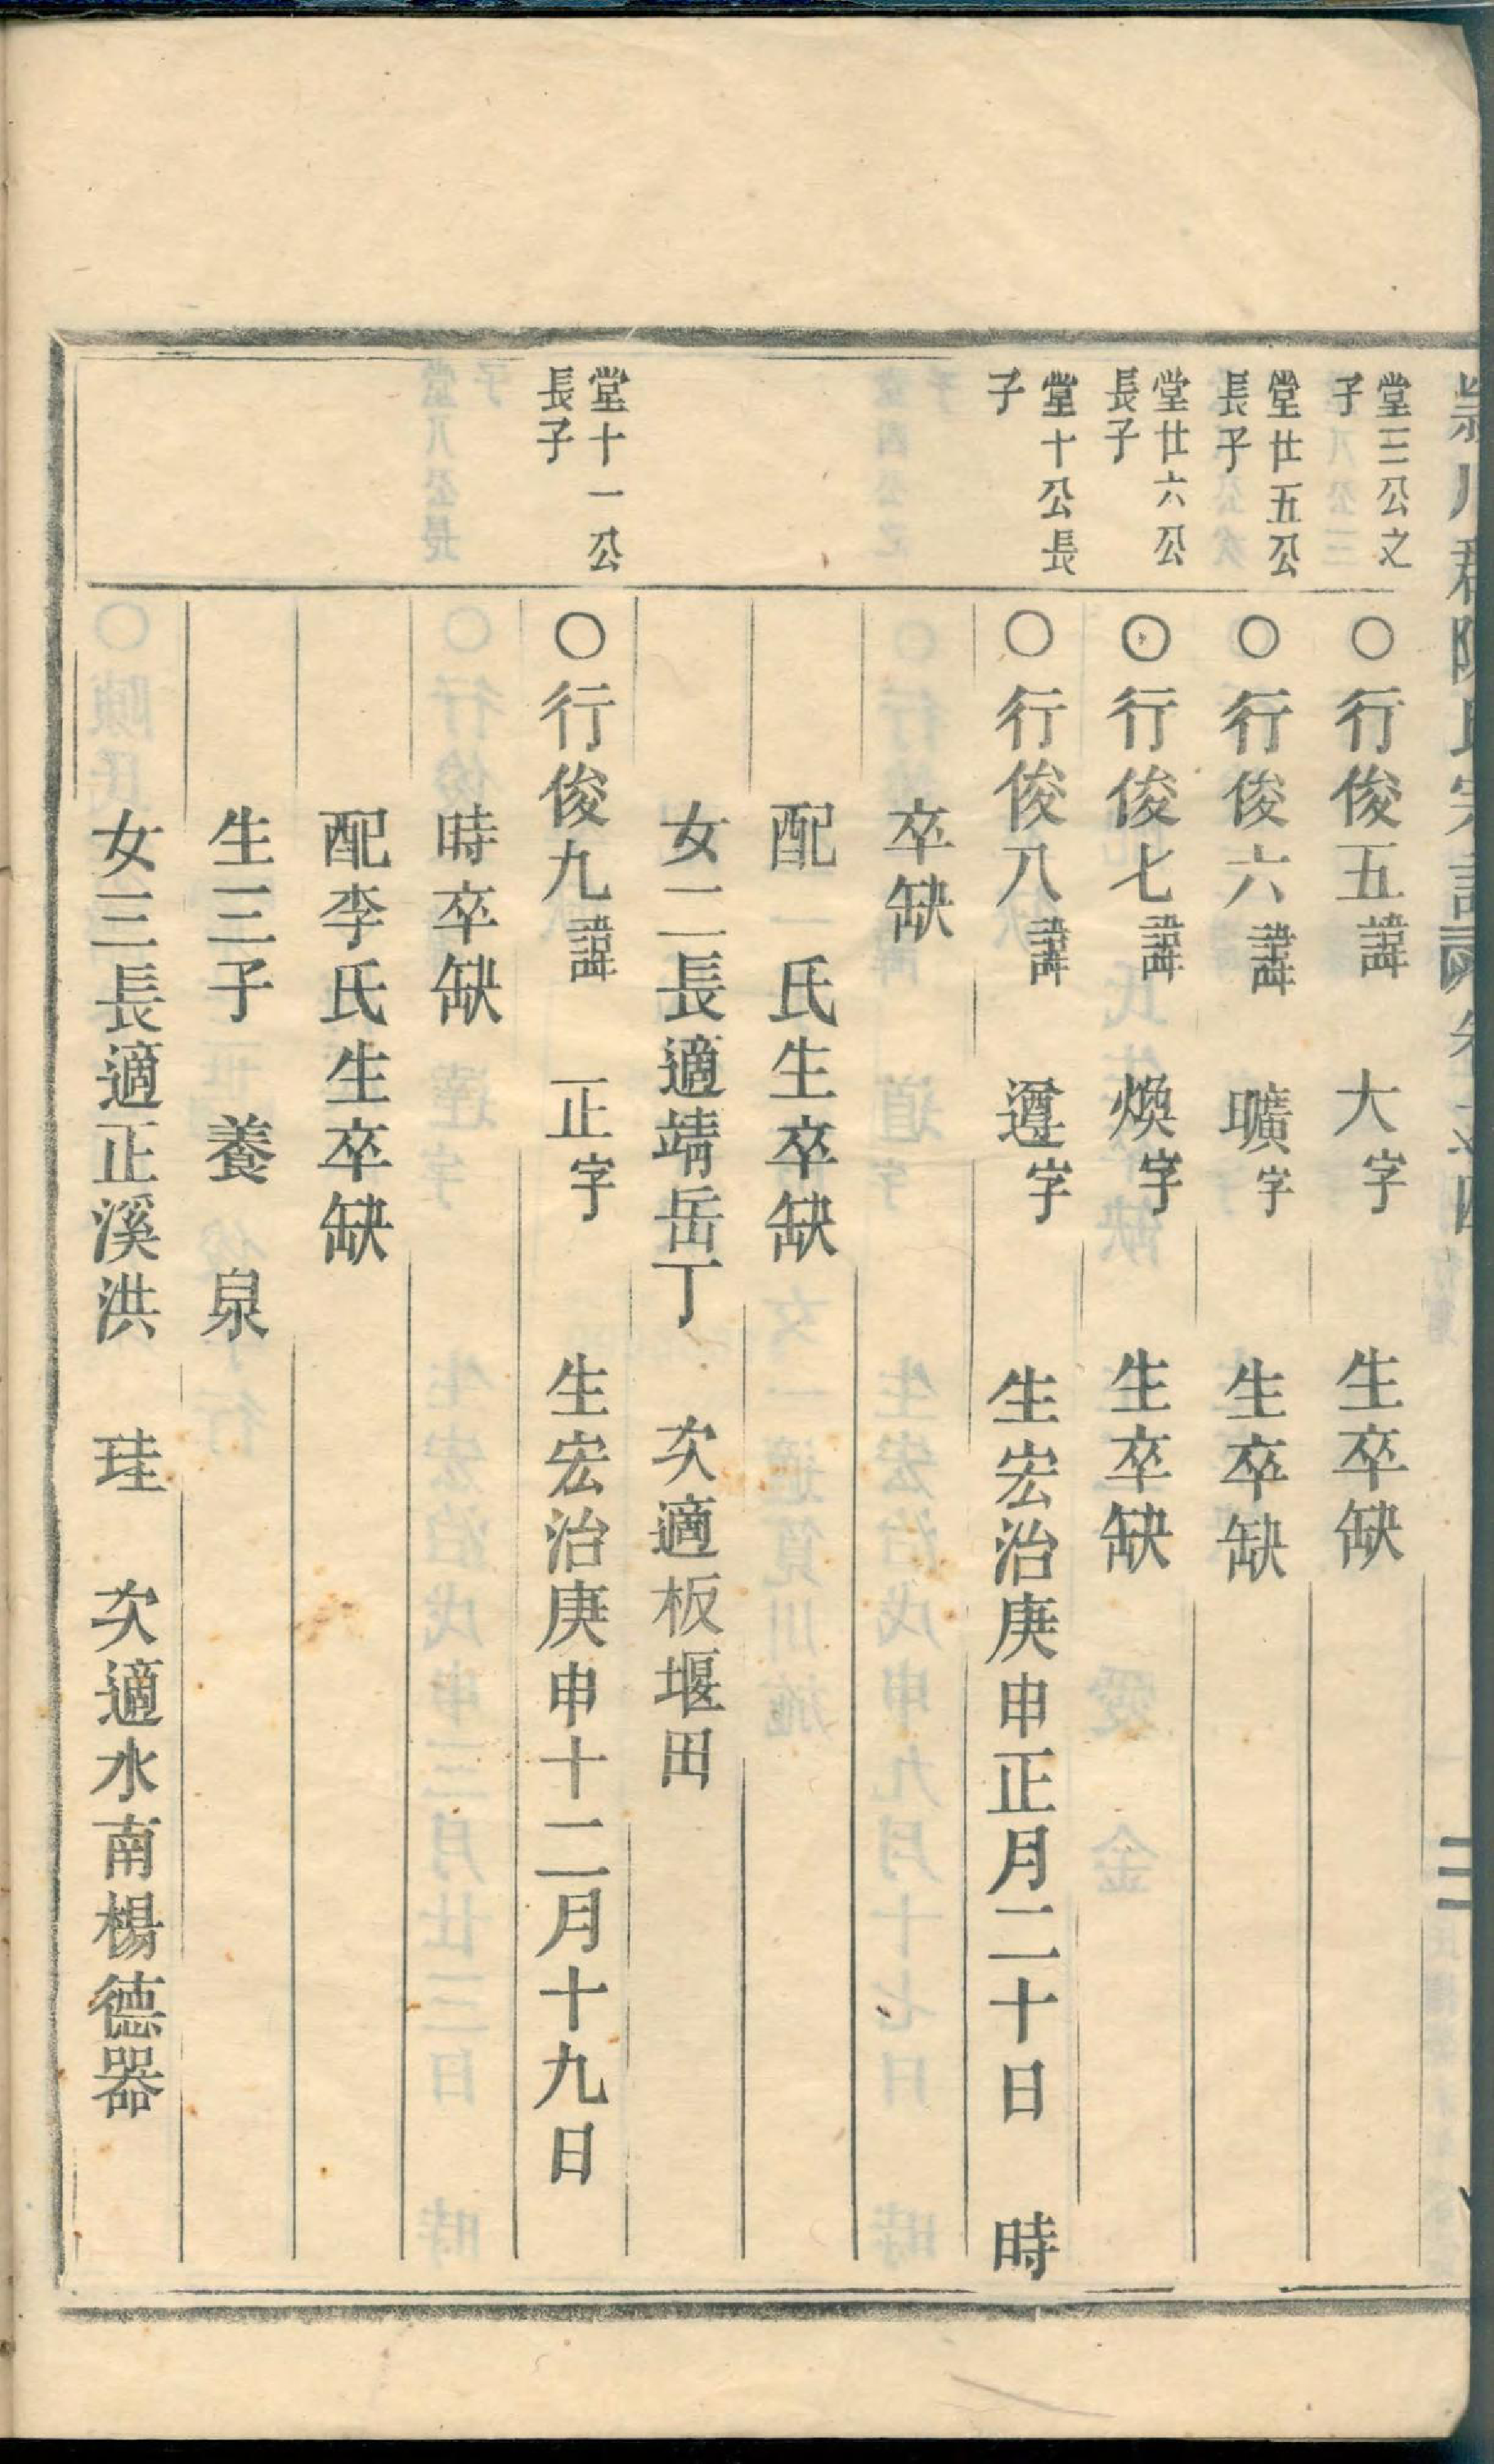 川
氏宗譜
卷之四
二
堂三公之
子
○行俊五諱 大字 生卒缺
堂廿五公
長子
○行俊六諱 曠字 生卒缺
堂廿六公
長子
○行俊七諱 煥字 生卒缺
堂十公長
子
○行俊八諱 遵字 生宏治庚申正月二十日 時
卒缺
配 氏生卒缺
女二長適靖岳丁 次適板堰田
堂十一公
長子
○行俊九諱 正字 生宏治庚申十二月十九日
時卒缺
配李氏生卒缺
生三子 養 泉
女三長適正溪洪 珪 次適水南楊德器